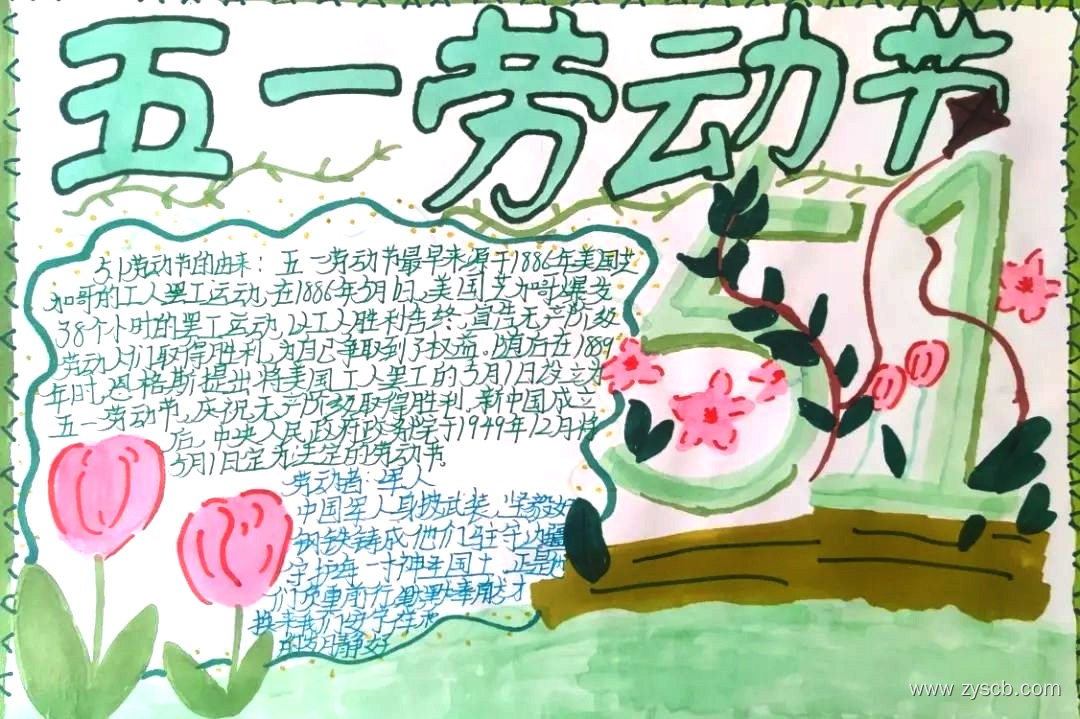 五一劳动节
51
51劳动节的由来：五一劳动节最早来源于1886年美国芝
加哥的工人罢工运动,在1886年5月1日,美国芝加哥爆发
38个小时的罢工运动,以工人胜利告终,宣告无产阶级
劳动人们取得胜利,为自己争取到了权益。随后在1889
年时,恩格斯提出将美国工人罢工的5月1日设立为
五一劳动节,庆祝无产阶级取得胜利.新中国成立
后,中央人民政府政务院于1949年12月将
5月1日定为法定的劳动节。
劳动者:军人
中国军人身披武装,坚毅如
钢铁铸成他们驻守边疆
守护每一寸神圣国土正是他
们负重前行,默默奉献才
换来我们好学生活
的岁月静好
www.zyscb.com